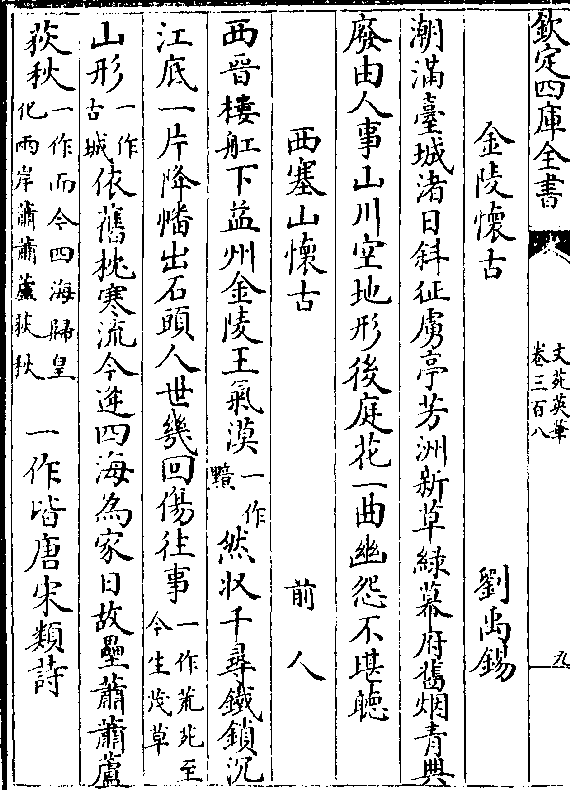 欽定四庫全書
文苑英華
卷三百八
九
金陵懷古
劉禹錫
潮滿臺城渚日斜征虜亭芳洲新草綠幕府舊烟青興
廢由人事山川空地形後庭花一曲幽怨不堪聽
西塞山懷古
前人
西晉樓舡下益州金陵王氣漠一作黯然収千尋鐵鎖沉
江底一片降幡出石頭人世幾回傷往事一作荒苑至今生茂草
山形一作古城依舊枕寒流今逢四海為家日故壘蕭蕭蘆
荻秋一作而今四海歸皇化兩岸蕭蕭蘆荻秋
一作皆唐宋類詩